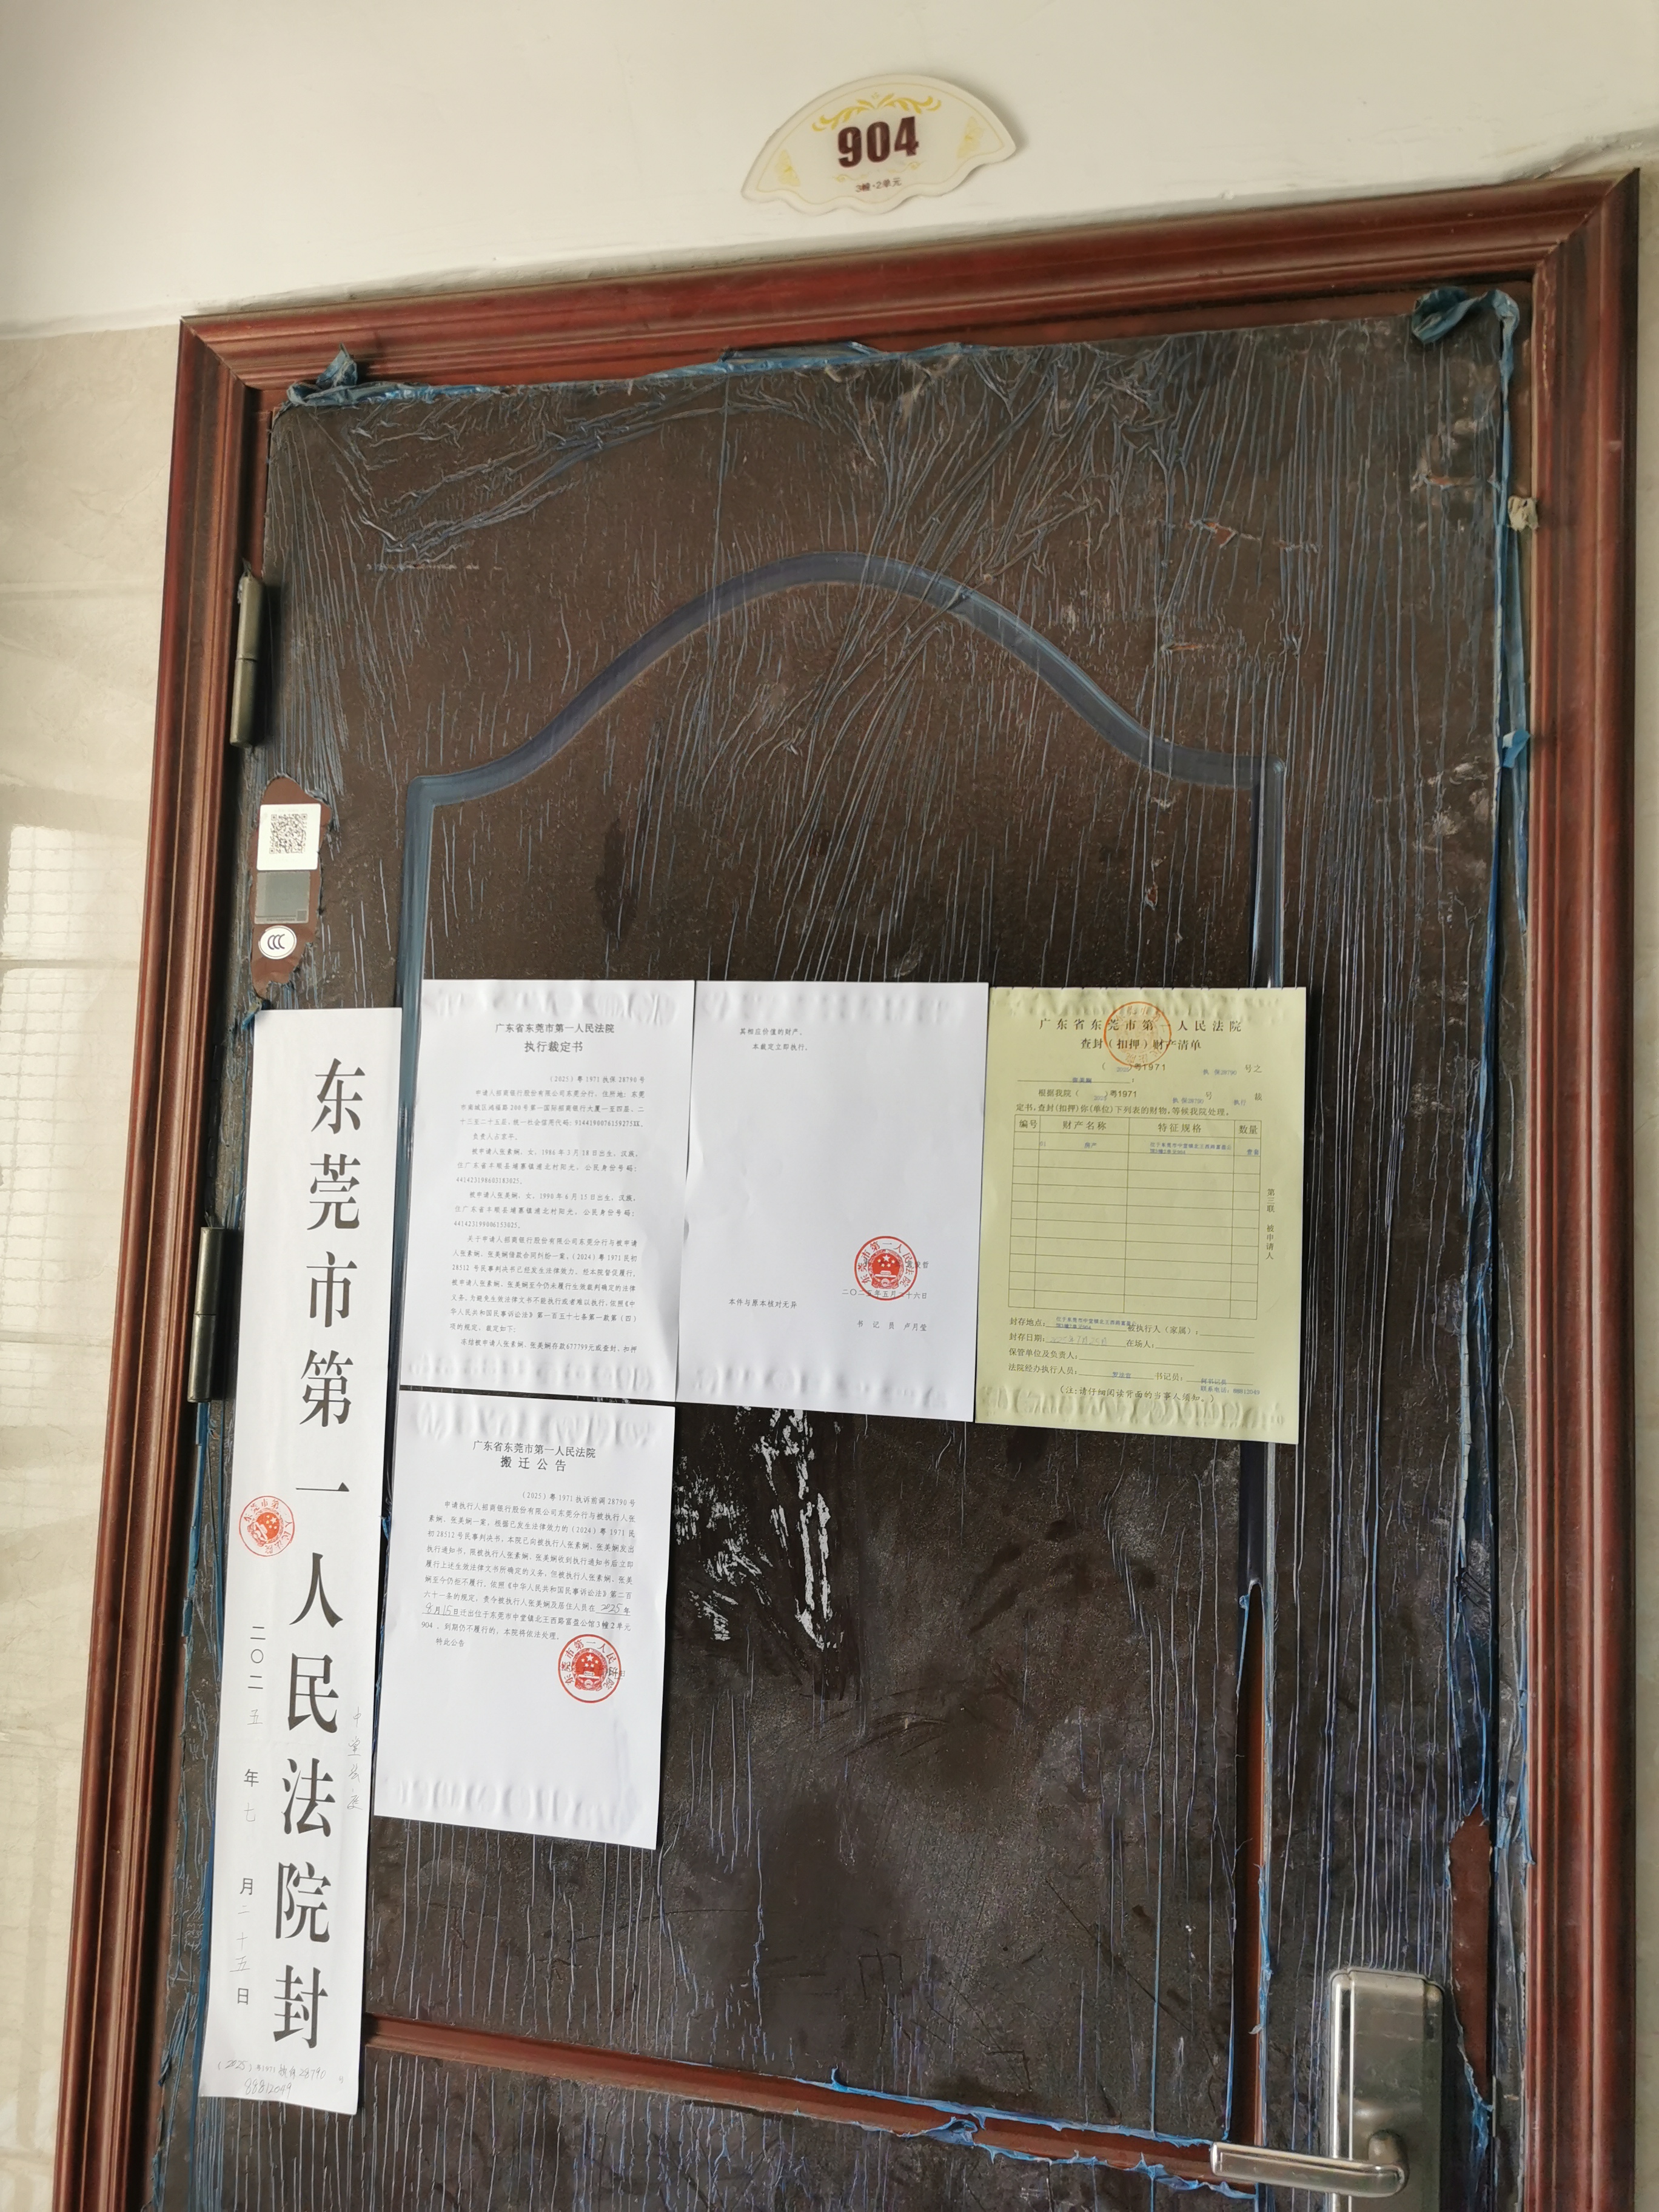 904
3幢·2单元
东莞市第一人民法院封
二〇二五年七月二十五日
(2025)粤1971执保28790号
88812049
广东省东莞市第一人民法院
执行裁定书
(2025)粤1971执保28790号
申请人招商银行股份有限公司东莞分行,住所地:东莞
市南城区鸿福路200号第一国际招商银行大厦一至四层、二
十三至二十五层,统一社会信用代码:
负责人
被申请人张素娴,女,1986年3月18日出生,汉族,
住广东省丰顺县埔寨镇浦北村阳光,公民身份号码:
441423198603183025。
被申请人张美娴,女,1990年6月15日出生,汉族,
住广东省丰顺县埔寨镇浦北村阳光,公民身份号码:
441423199006153025。
关于申请人招商银行股份有限公司东莞分行与被申请
人张素娴、张美娴借款合同纠纷一案,(2024)粤1971民初
28512号民事判决书已经发生法律效力。经本院督促履行,
被申请人张素娴、张美娴至今仍未履行生效裁判确定的法律
义务。为避免生效法律文书不能执行或者难以执行,依照《中
华人民共和国民事诉讼法》第一百五十七条第一款第(四)
项的规定,裁定如下:
冻结被申请人张素娴、张美娴存款677799元或查封、扣押
其相应价值的财产。
本裁定立即执行。
二〇二五年五月二十六日
本件与原本核对无异
书记员 卢月莹
东莞市第一人民法院
广东省东莞市第一人民法院
查封(扣押)财产清单
(2025)粤1971执保28790号之
根据我院(2025)粤1971执保28790号执行裁
定书,查封(扣押)你(单位)下列表的财物,等候我院处理。
编号 财产名称 特征规格 数量
01 房产 位于东莞市中堂镇北王西路富盈公馆3幢2单元904 壹套
第三联 被申请人
封存地点:位于东莞市中堂镇北王西路富盈公馆3幢2单元904 被执行人(家属):
封存日期: 在场人:
保管单位及负责人:
法院经办执行人员: 书记员:
联系电话:88812049
(注:请仔细阅读背面的当事人须知。)
广东省东莞市第一人民法院
搬迁公告
(2025)粤1971执诉前调28790号
申请执行人招商银行股份有限公司东莞分行与被执行人张
素娴、张美娴一案,根据已发生法律效力的(2024)粤1971民
初28512号民事判决书,本院已向被执行人张素娴、张美娴发出
执行通知书,限被执行人张素娴、张美娴收到执行通知书后立即
履行上述生效法律文书所确定的义务,但被执行人张素娴、张美
娴至今仍拒不履行。依照《中华人民共和国民事诉讼法》第二百
六十一条的规定,责令被执行人张美娴及居住人员在2025年
8月15日迁出位于东莞市中堂镇北王西路富盈公馆3幢2单元
904。到期仍不履行的,本院将依法处理。
特此公告
东莞市第一人民法院